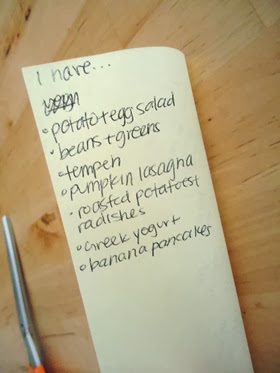 I have...
• potato + egg salad
• beans + greens
• tempeh
• pumpkin lasagna
• roasted potatoes +
radishes
• Greek yogurt
• banana pancakes